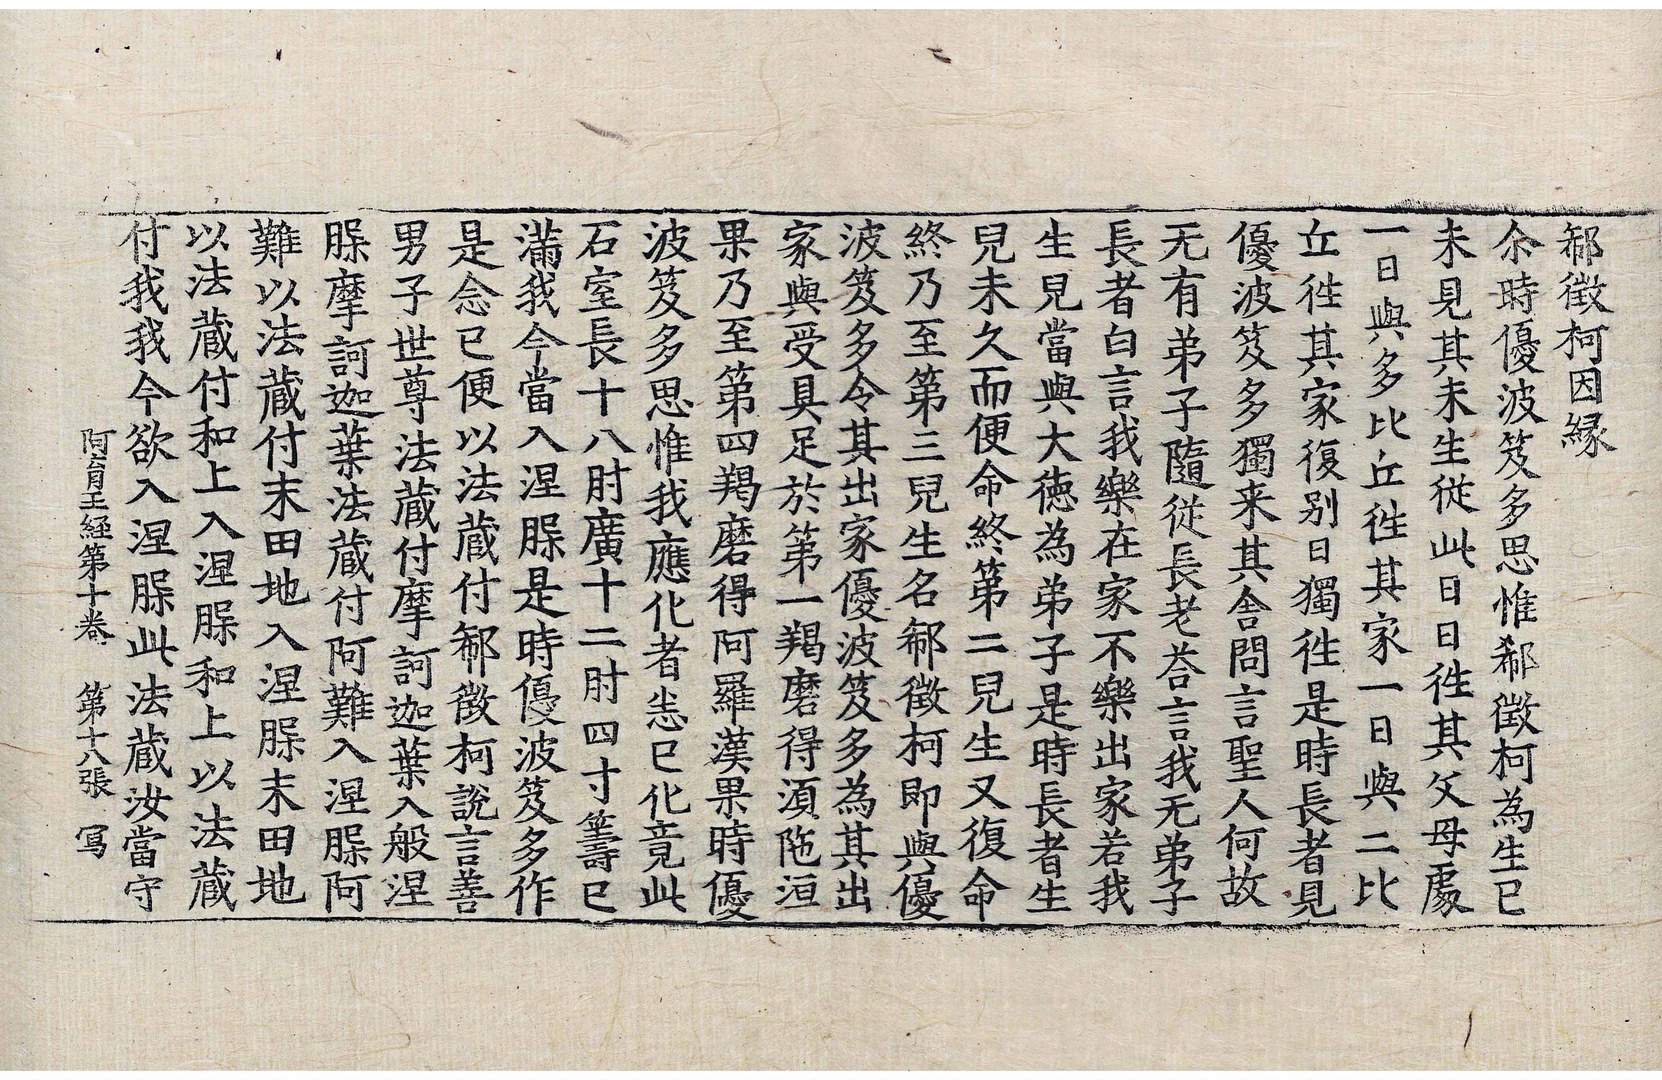 郗徵柯因縁
尒時優波笈多思惟郗徵柯為生已
未見其未生従此日日徃其父母處
一日與多比丘徃其家一日與二比
丘徃其家復別日獨徃是時長者見
優波笈多獨来其舍問言聖人何故
无有弟子隨従長老荅言我无弟子
長者白言我樂在家不樂出家若我
生兒當與大徳為弟子是時長者生
兒未久而便命終第二兒生又復命
終乃至第三兒生名郗徵柯即與優
波笈多令其出家優波笈多為其出
家與受具足於第一羯磨得湏陁洹
果乃至第四羯磨得阿羅漢果時優
波笈多思惟我應化者悉已化竟此
石室長十八肘廣十二肘四寸籌已
滿我今當入涅腺是時優波笈多作
是念已便以法蔵付郗徵柯說言善
男子世尊法蔵付摩訶迦葉入般涅
腺摩訶迦葉法蔵付阿難入涅腺阿
難以法蔵付末田地入涅腺末田地
以法蔵付和上入涅腺和上以法蔵
付我我今欲入涅腺此法蔵汝當守
阿育王経第十卷 第十八張 寫